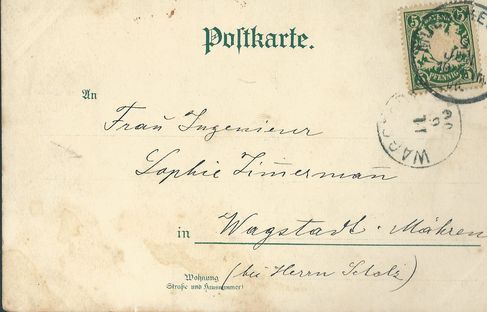 Postkarte.
5 5
PFENNIG
An
Frau Ingenieur
Sophie Zimmermann
in Wagstadt. Mähren
Wohnung (bei Herrn Scholz)
Straße und Hausnummer